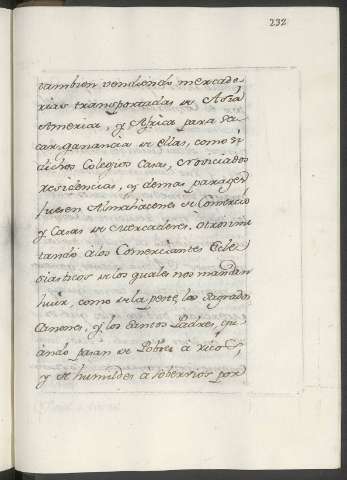 232
tambien vendiendo mercade-
rias transportadas de Asia
America, y Africa para sa-
car ganancia de ellas, como si
dichos Colegios Casas, Noviciados
residencias, y demas parages
fuesen Almahacenes de Comercio
y Casas de Mercaderes,
tando à los Comerciantes Ecle-
siasticos de los quales nos mandan
huir, como de la peste los Sagrados
Canones, y los Santos Padres, qu-
ando pasan de Pobres à ricos,
y de humildes à sobervios por